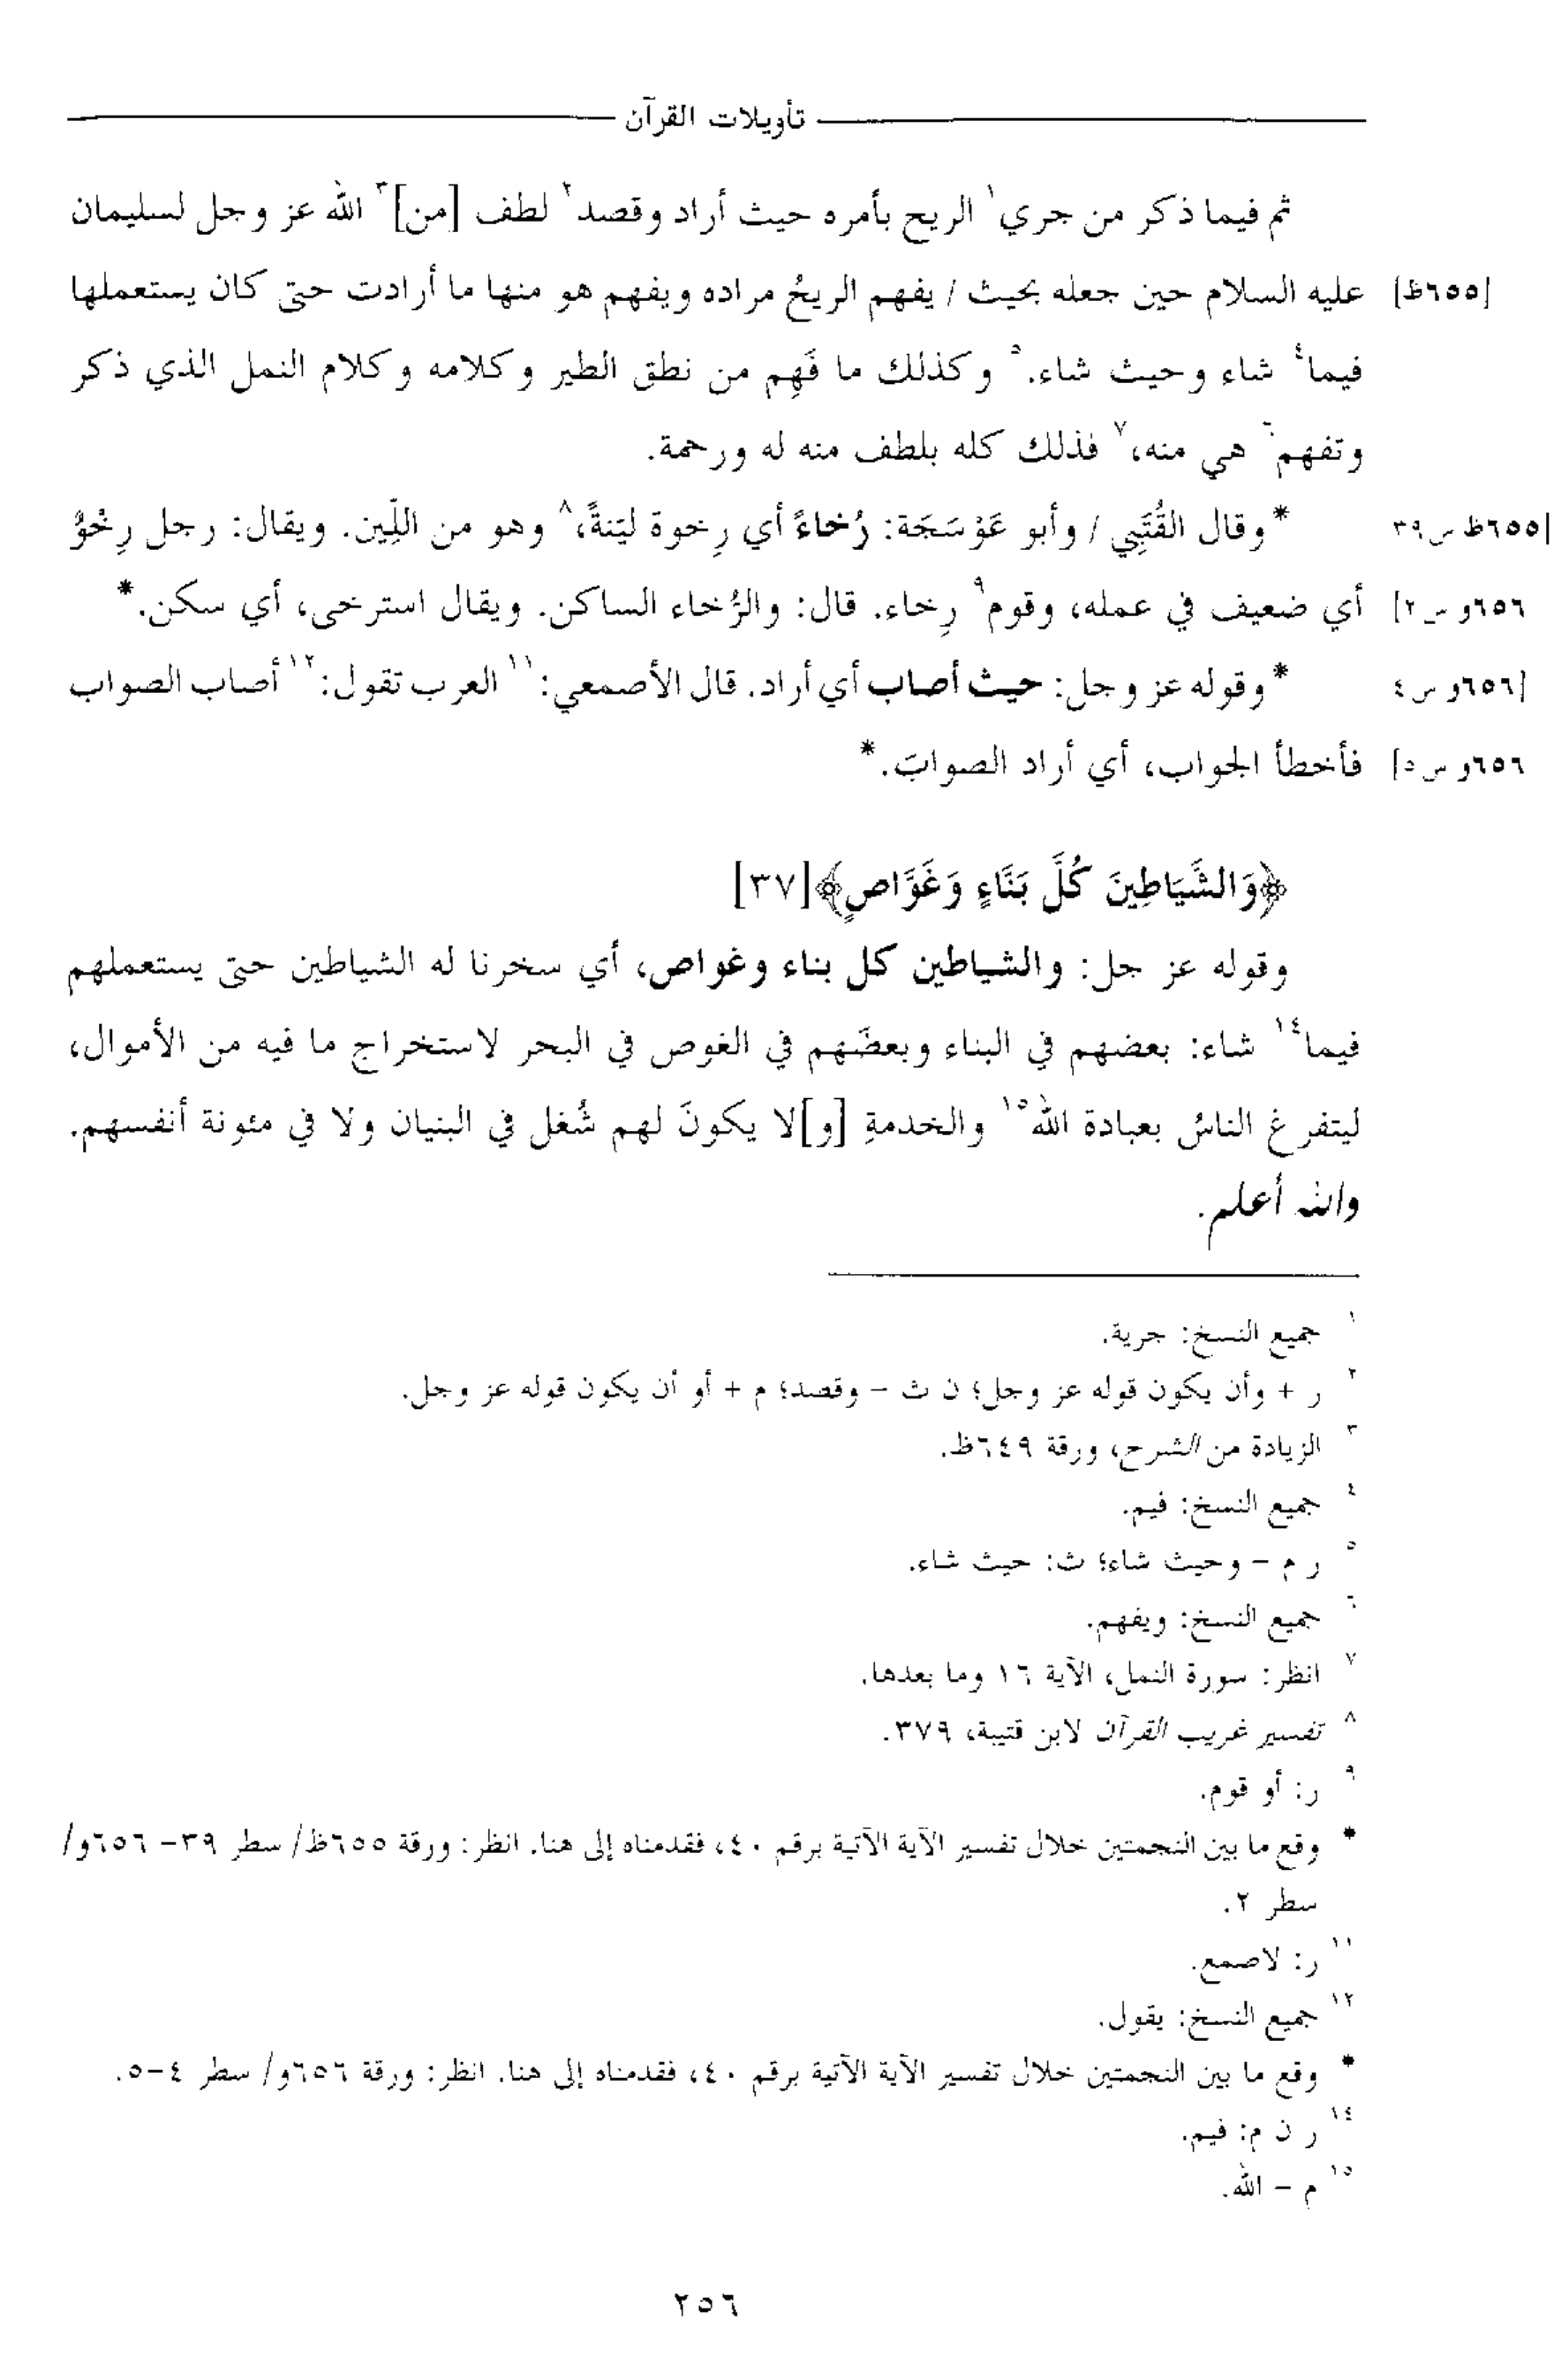 تأويلات القرآن
ثم فيما ذكر من جري١ الريح بأمره حيث أراد وقصد٢ لطف [من]٣ الله عز وجل لسليمان
[٦٥٥ظ] عليه السلام حين جعله بحيث / يفهم الريحُ مراده ويفهم هو منها ما أرادت حتى كان يستعملها
فيما٤ شاء وحيث شاء.٥ وكذلك ما فَهِم من نطق الطير وكلامه وكلام النمل الذي ذكر
وتفهم٦ هي منه،٧ فذلك كله بلطف منه له ورحمة.
[٦٥٥ظ س٣٩ *وقال القُتَبِي / وأبو عَوْسَجَة: رُخاءً أي رِخوة ليّنةً،٨ وهو من اللِّين. ويقال: رجل رِخْوٌ
٦٥٦و س٢] أي ضعيف في عمله، وقوم٩ رِخاء. قال: والرُّخاء الساكن. ويقال استرخى، أي سكن.*
[٦٥٦و س٤ *وقوله عز وجل: حيث أصاب أي أراد. قال الأصمعي:١١ العرب تقول:١٢ أصاب الصواب
٦٥٦و س٥] فأخطأ الجواب، أي أراد الصوابَ.*
﴿وَالشَّيَاطِينَ كُلَّ بَنَّاءٍ وَغَوَّاصٍ﴾[٣٧]
وقوله عز جل: والشياطين كل بناء وغواص، أي سخرنا له الشياطين حتى يستعملهم
فيما١٤ شاء: بعضهم في البناء وبعضَهم في الغوص في البحر لاستخراج ما فيه من الأموال،
ليتفرغ الناسُ بعبادة الله١٥ والخدمةِ [و]لا يكونَ لهم شُغل في البنيان ولا في مئونة أنفسهم.
والله أعلم.
١ جميع النسخ: جرية.
٢ ر + وأن يكون قوله عز وجل؛ ن ث – وقصد؛ م + أو أن يكون قوله عز وجل.
٣ الزيادة من الشرح، ورقة ٦٤٩ظ.
٤ جميع النسخ: فيم.
٥ ر م – وحيث شاء؛ ث: حيث شاء.
٦ جميع النسخ: ويفهم.
٧ انظر: سورة النمل، الآية ١٦ وما بعدها.
٨ تفسير غريب القرآن لابن قتيبة، ٣٧٩.
٩ ر: أو قوم.
* وقع ما بين النجمتين خلال تفسير الآية الآتية برقم ٤٠، فقدمناه إلى هنا. انظر: ورقة ٦٥٥ظ/ سطر ٣٩– ٦٥٦و/
سطر ٢.
١١ ر: لاصمع.
١٢ جميع النسخ: يقول.
* وقع ما بين النجمتين خلال تفسير الآية الآتية برقم ٤٠، فقدمناه إلى هنا. انظر: ورقة ٦٥٦و/ سطر ٤–٥.
١٤ ر ن م: فيم.
١٥ م – الله.
٢٥٦